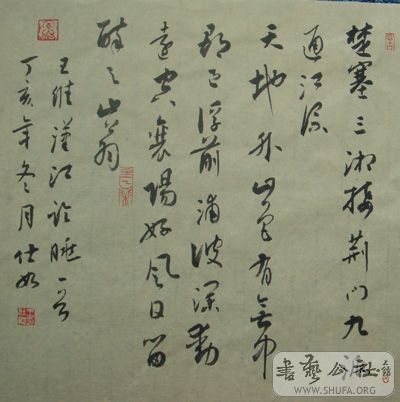 楚塞三湘接荆门九派
通江流
天地外山色有無中
郡邑浮前浦波澜動
遠空襄陽好风日留
醉与山翁
王維漢江临眺一首
丁亥年冬月仕如
書藝公社
WWW.SHUFA.ORG